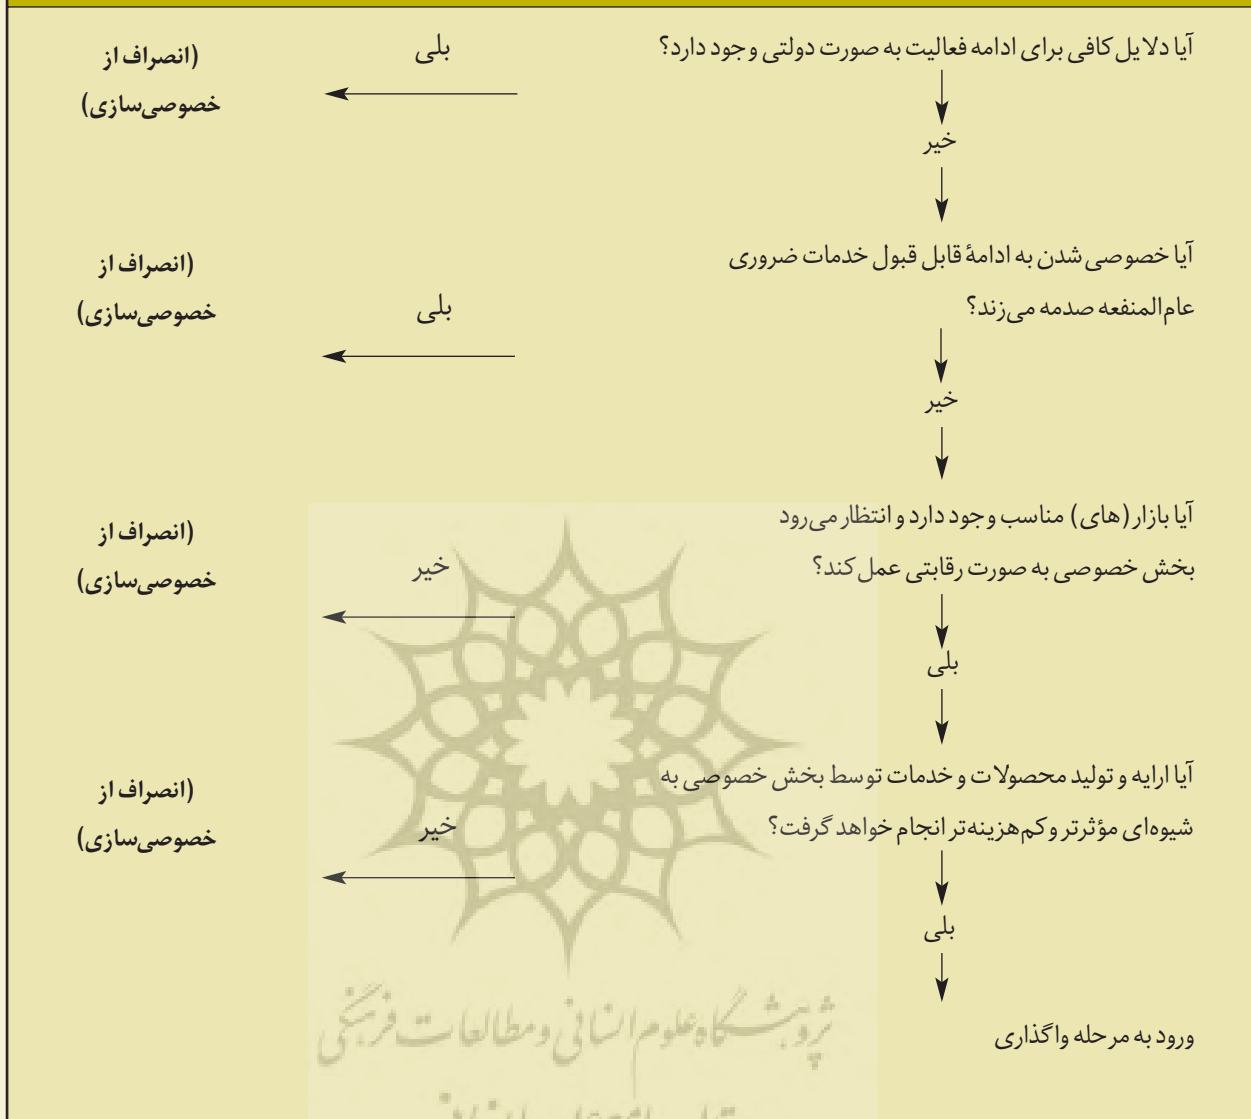 آیا دلایل کافی برای ادامه فعالیت به صورت دولتی وجود دارد؟
بلی
(انصراف از
خصوصی‌سازی)
خیر
آیا خصوصی شدن به ادامهٔ قابل قبول خدمات ضروری
عام‌المنفعه صدمه می‌زند؟
بلی
(انصراف از
خصوصی‌سازی)
خیر
آیا بازار(های) مناسب وجود دارد و انتظار می‌رود
بخش خصوصی به صورت رقابتی عمل کند؟
خیر
(انصراف از
خصوصی‌سازی)
بلی
آیا ارایه و تولید محصولات و خدمات توسط بخش خصوصی به
شیوه‌ای مؤثرتر و کم‌هزینه‌تر انجام خواهد گرفت؟
خیر
(انصراف از
خصوصی‌سازی)
بلی
ورود به مرحله واگذاری
پژوهشگاه علوم انسانی و مطالعات فرهنگی